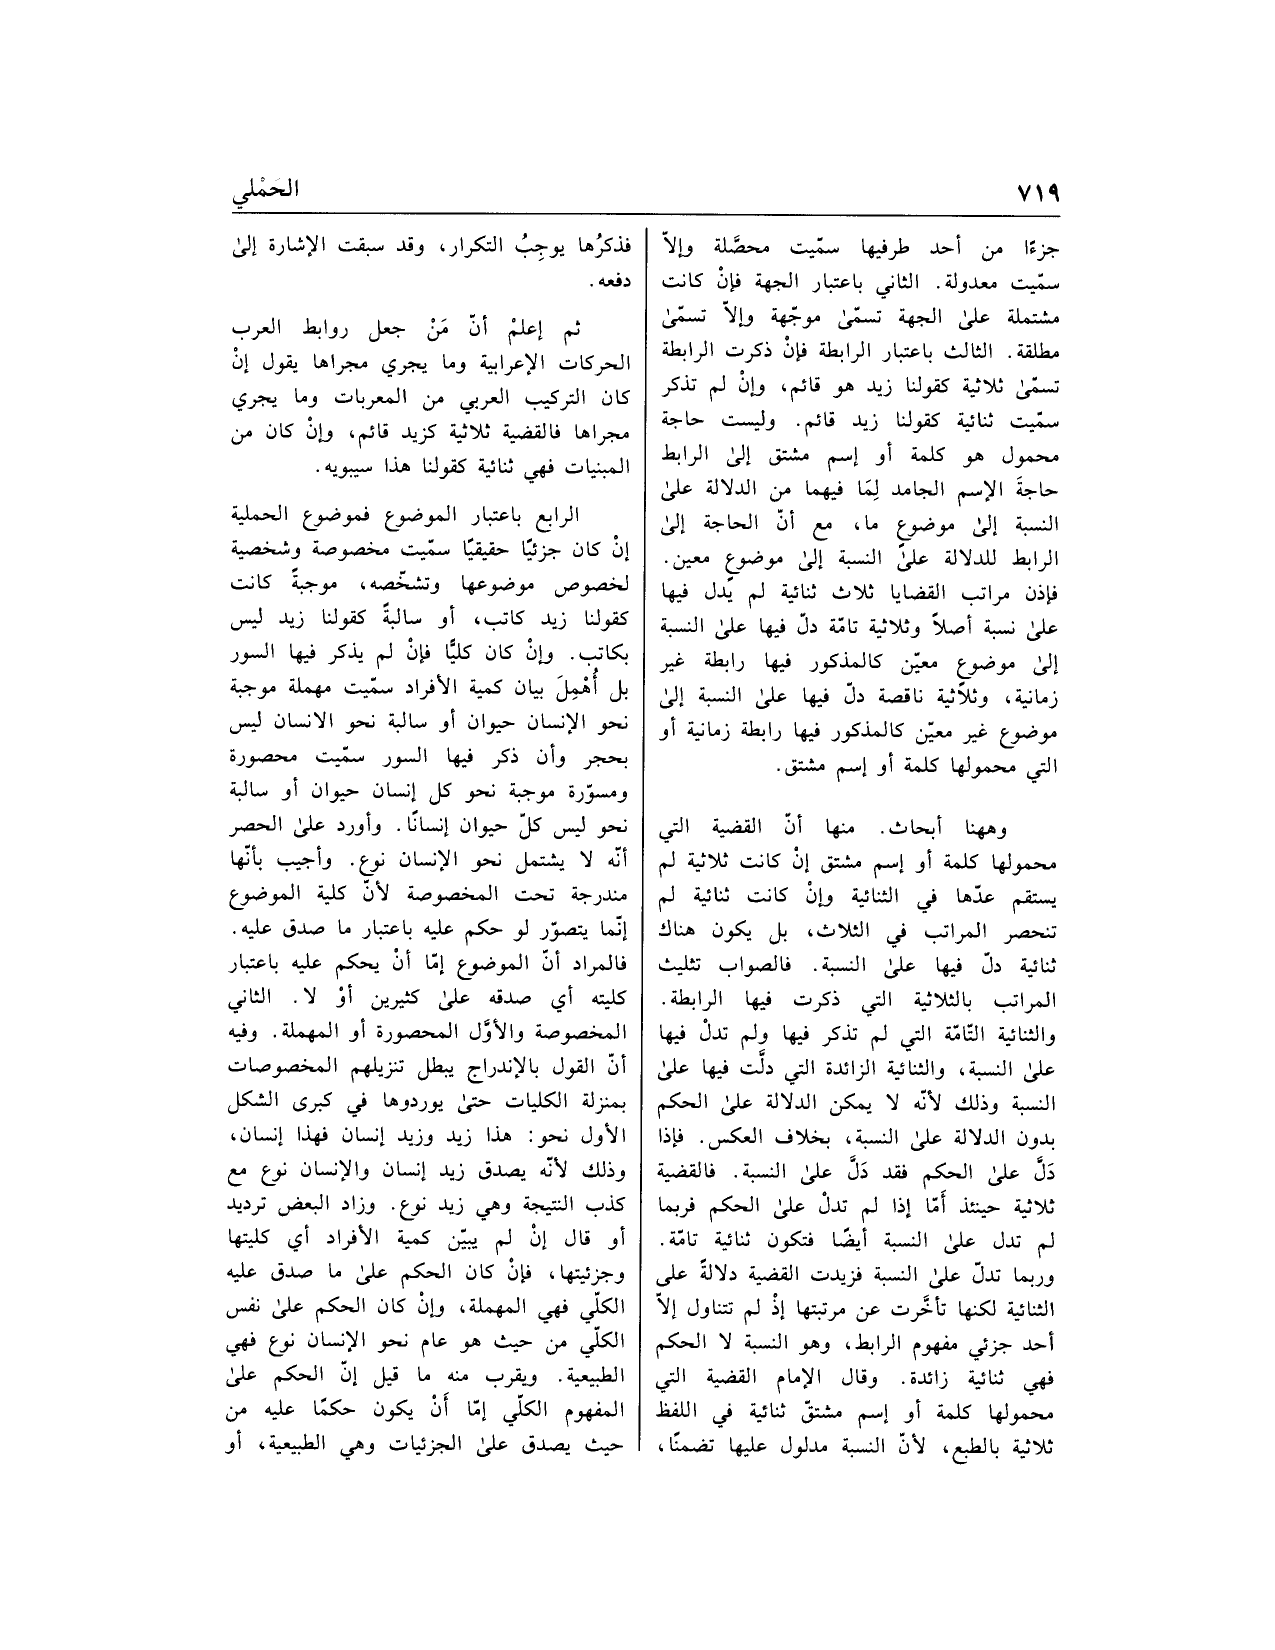 ٧١٩
الحَمْلي
جزءًا من أحد طرفيها سمّيت محصَّلة وإلاّ
سمّيت معدولة. الثاني باعتبار الجهة فإنْ كانت
مشتملة علىٰ الجهة تسمّىٰ موجّهة وإلاّ تسمّىٰ
مطلقة. الثالث باعتبار الرابطة فإنْ ذكرت الرابطة
تسمّىٰ ثلاثية كقولنا زيد هو قائم، وإنْ لم تذكر
سمّيت ثنائية كقولنا زيد قائم. وليست حاجة
محمول هو كلمة أو إسم مشتق إلىٰ الرابط
حاجةَ الإسم الجامد لِمَا فيهما من الدلالة علىٰ
النسبة إلىٰ موضوع ما، مع أنّ الحاجة إلىٰ
الرابط للدلالة علىٰ النسبة إلىٰ موضوع معين.
فإذن مراتب القضايا ثلاث ثنائية لم يّدل فيها
علىٰ نسبة أصلاً وثلاثية تامّة دلّ فيها علىٰ النسبة
إلىٰ موضوع معيّن كالمذكور فيها رابطة غير
زمانية، وثلاثية ناقصة دلّ فيها علىٰ النسبة إلىٰ
موضوع غير معيّن كالمذكور فيها رابطة زمانية أو
التي محمولها كلمة أو إسم مشتق.
وههنا أبحاث. منها أنّ القضية التي
محمولها كلمة أو إسم مشتق إنْ كانت ثلاثية لم
يستقم عدّها في الثنائية وإنْ كانت ثنائية لم
تنحصر المراتب في الثلاث، بل يكون هناك
ثنائية دلّ فيها علىٰ النسبة. فالصواب تثليث
المراتب بالثلاثية التي ذكرت فيها الرابطة.
والثنائية التّامّة التي لم تذكر فيها ولم تدلْ فيها
علىٰ النسبة، والثنائية الزائدة التي دلَّت فيها علىٰ
النسبة وذلك لأنّه لا يمكن الدلالة علىٰ الحكم
بدون الدلالة علىٰ النسبة، بخلاف العكس. فإذا
دَلَّ علىٰ الحكم فقد دَلَّ علىٰ النسبة. فالقضية
ثلاثية حينئذ أَمّا إذا لم تدلْ علىٰ الحكم فربما
لم تدل علىٰ النسبة أيضًا فتكون ثنائية تامّة.
وربما تدلّ علىٰ النسبة فزيدت القضية دلالةً على
الثنائية لكنها تأخَّرت عن مرتبتها إذْ لم تتناول إلاّ
أحد جزئي مفهوم الرابط، وهو النسبة لا الحكم
فهي ثنائية زائدة. وقال الإمام القضية التي
محمولها كلمة أو إسم مشتقّ ثنائية في اللفظ
ثلاثية بالطبع، لأنّ النسبة مدلول عليها تضمنًا،
فذكرُها يوجِبُ التكرار، وقد سبقت الإشارة إلىٰ
دفعه.
ثم إعلمْ أنّ مَنْ جعل روابط العرب
الحركات الإعرابية وما يجري مجراها يقول إنْ
كان التركيب العربي من المعربات وما يجري
مجراها فالقضية ثلاثية كزيد قائم، وإنْ كان من
المبنيات فهي ثنائية كقولنا هذا سيبويه.
الرابع باعتبار الموضوع فموضوع الحملية
إنْ كان جزئيًا حقيقيًا سمّيت مخصوصة وشخصية
لخصوص موضوعها وتشخّصه، موجبةً كانت
كقولنا زيد كاتب، أو سالبةً كقولنا زيد ليس
بكاتب. وإنْ كان كليًّا فإنْ لم يذكر فيها السور
بل أُهْمِلَ بيان كمية الأفراد سمّيت مهملة موجبة
نحو الإنسان حيوان أو سالبة نحو الانسان ليس
بحجر وأن ذكر فيها السور سمّيت محصورة
ومسوّرة موجبة نحو كل إنسان حيوان أو سالبة
نحو ليس كلّ حيوان إنسانًا. وأورد علىٰ الحصر
أنّه لا يشتمل نحو الإنسان نوع. وأجيب بأنّها
مندرجة تحت المخصوصة لأنّ كلية الموضوع
إنّما يتصوّر لو حكم عليه باعتبار ما صدق عليه.
فالمراد أنّ الموضوع إمّا أنْ يحكم عليه باعتبار
كليته أي صدقه علىٰ كثيرين أوْ لا. الثاني
المخصوصة والأوَّل المحصورة أو المهملة. وفيه
أنّ القول بالإندراج يبطل تنزيلهم المخصوصات
بمنزلة الكليات حتىٰ يوردوها في كبرى الشكل
الأول نحو: هذا زيد وزيد إنسان فهذا إنسان،
وذلك لأنّه يصدق زيد إنسان والإنسان نوع مع
كذب النتيجة وهي زيد نوع. وزاد البعض ترديد
أو قال إنْ لم يبيّن كمية الأفراد أي كليتها
وجزئيتها، فإنْ كان الحكم علىٰ ما صدق عليه
الكلّي فهي المهملة، وإنْ كان الحكم علىٰ نفس
الكلّي من حيث هو عام نحو الإنسان نوع فهي
الطبيعية. ويقرب منه ما قيل إنّ الحكم علىٰ
المفهوم الكلّي إمّا أَنْ يكون حكمًا عليه من
حيث يصدق علىٰ الجزئيات وهي الطبيعية، أو